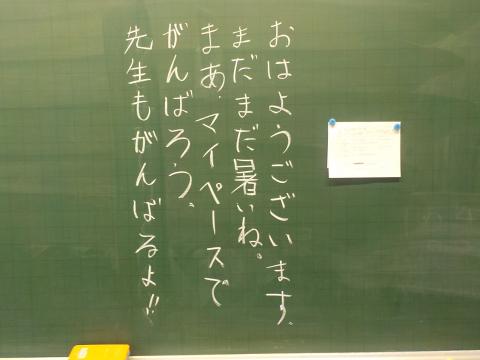 おはようございます。
まだまだ暑いね。
まあ、マイペースで
がんばろう。
先生もがんばるよ!!